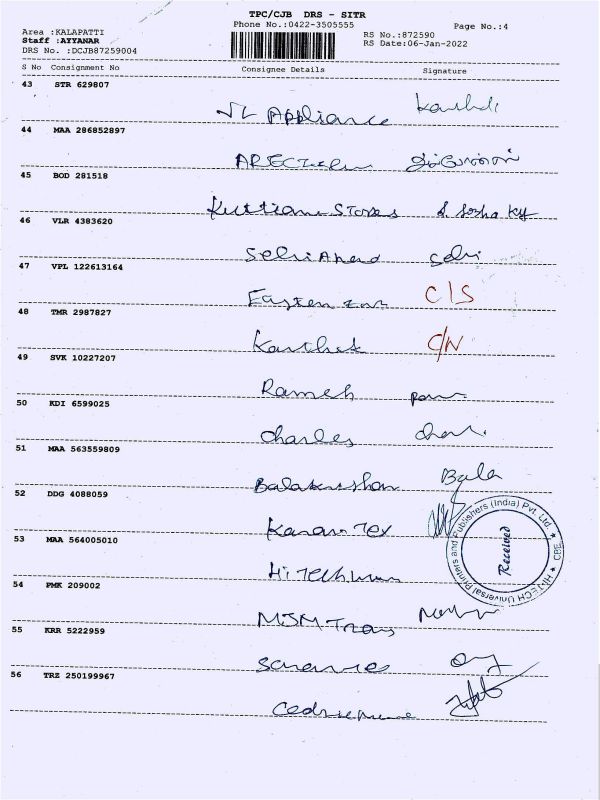 TPC/CJB DRS - SITR
Phone No.:0422-3505555
Page No.:4
Area :KALAPATTI
Staff :AYYANAR
DRS No. :DCJB87259004
RS No.:872590
RS Date:06-Jan-2022
S No Consignment No Consignee Details Signature
43 STR 629807
VL Appliance
44 MAA 286852897
45 BOD 281518
Stores
46 VLR 4383620
Selvi
47 VPL 122613164
C/S
48 TMR 2987827
Karthik C/N
49 SVK 10227207
Ramesh
50 KDI 6599025
Charles
51 MAA 563559809
Balakrishan Bala
52 DDG 4088059
Karan Tex
53 MAA 564005010
Hi Tech
HI-TECH Universal Printers and Publishers (India) Pvt. Ltd. ★ CBE.
Received
54 PMK 209002
MSM Trans
55 KRR 5222959
56 TRZ 250199967